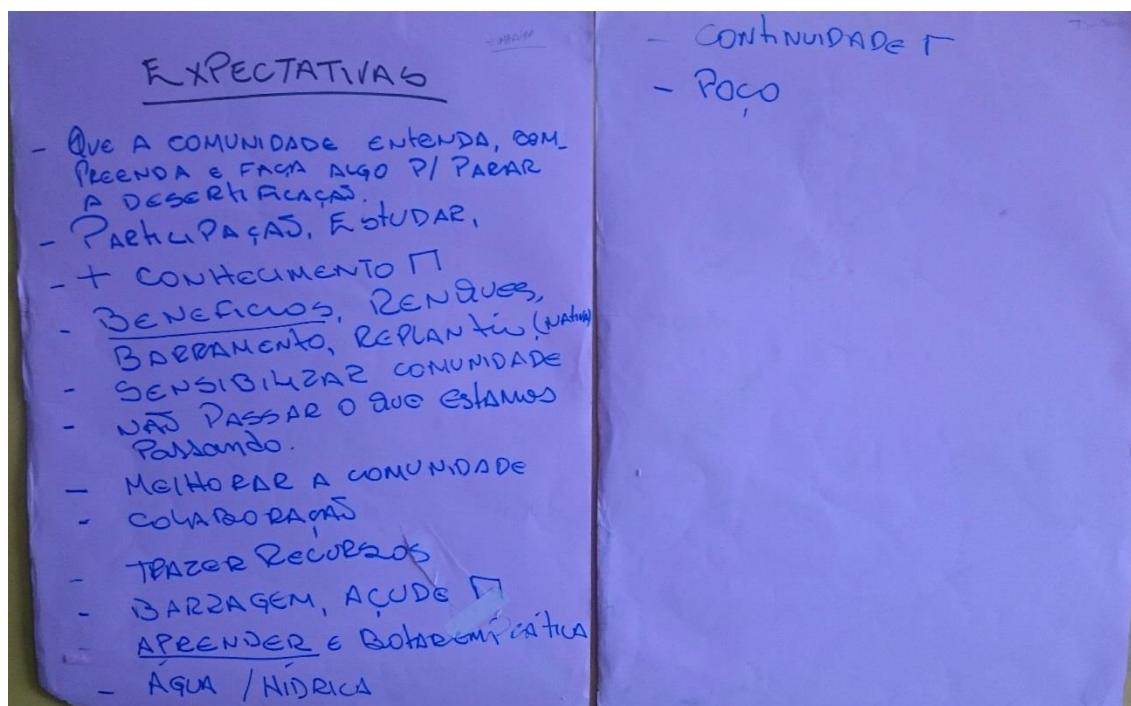 EXPECTATIVAS
- QUE A COMUNIDADE ENTENDA, COM_
PREENDA E FAÇA ALGO P/ PARAR
A DESERTIFICAÇÃO.
- PARTICIPAÇÃO, ESTUDAR,
- + CONHECIMENTO
- BENEFICIOS, RENQUES,
BARRAMENTO, REPLANTIO (NATIVA)
- SENSIBILIZAR COMUNIDADE
- NÃO PASSAR O QUE ESTAMOS
PASSANDO.
- MELHORAR A COMUNIDADE
- COLABORAÇÃO
- TRAZER RECURSOS
- BARRAGEM, AÇUDE
- APRENDER E BOTAR EM PRÁTICA
- ÁGUA / HÍDRICA
- CONTINUIDADE
- POÇO